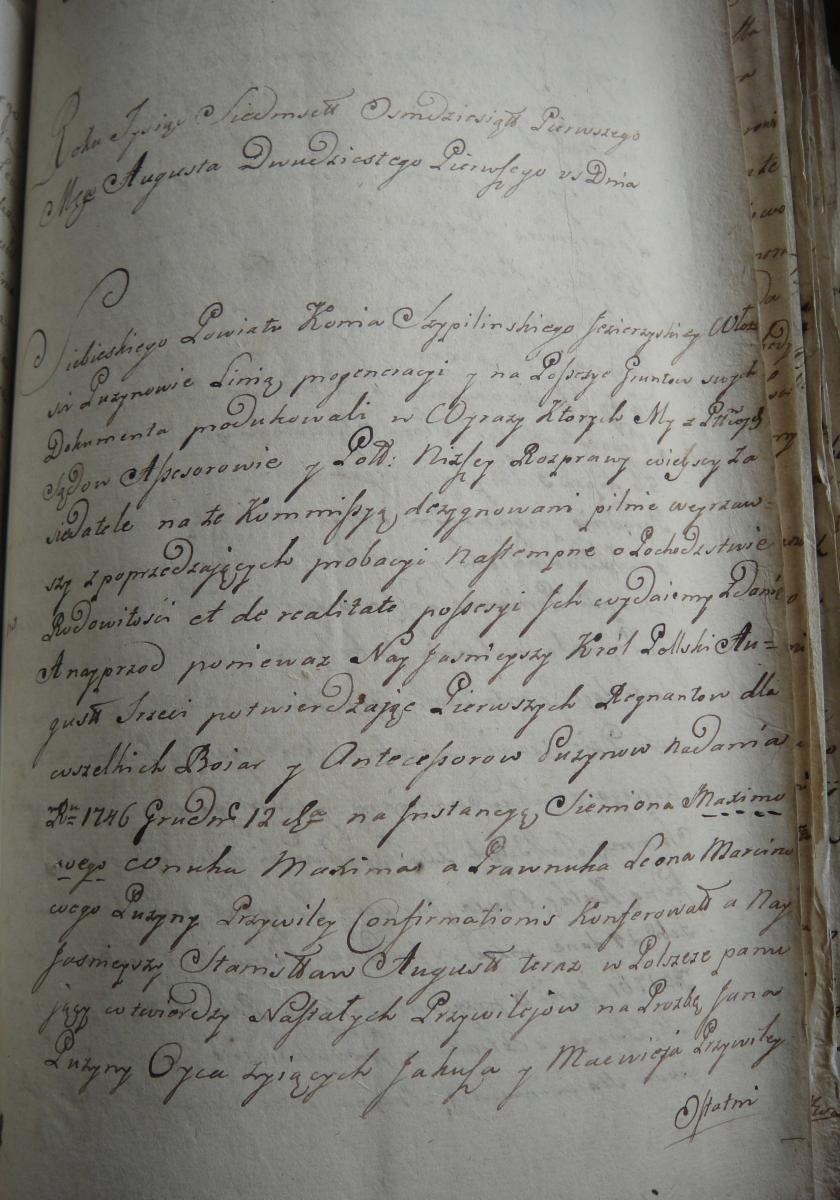 Roku Tysiąc Siedmsett Osmdziesiątt Pierwszego
Mca Augusta Dwudziestego Pierwszego vs Dnia
Siebieskiego Powiatu Konia Szypilinskiego Jezierzyskiey Włos
sci Puzynowie Linią progeneracyi y na Possesye Gruntow swych
Dokumenta produkowali w Wyrazy Ktorych My z
Sądow Assesorowie y Poltt: Nizszey Rozprawy wieyscy Za
siedatele na te Kommissyą dezygnowani pilnie weyrzaw-
szy z poprzedzaiących probacyi Nastempne o Pochodzstwie
Rodowitości et de realitate possesyi Ich wydaiemy Zdanie
A nayprzod poniewaz Nay Jasnieyszy Król Pollski Au=
gustt Trzeci potwierdzaiąc Pierwszych Regnantow dla
wszelkich Boiar y Antecessorow Puzynow nadania
Ru 1746 Grudnia 12 dnia na Instancyą Siemiona Maximo
wego wnuka Maxima a Prawnuka Leona Marcino
wego Puzyny Przywiley Confirmationis Konferowatt a Nay
Jasnieyszy Stanisttaw Augustt teraz w Polszcze panu
jący w twierdzy Nastałych Przywilejow na Prozbę Jana
Puzyny Oyca zyiących Jakusza y Maewieja Przywiley
Ostatni